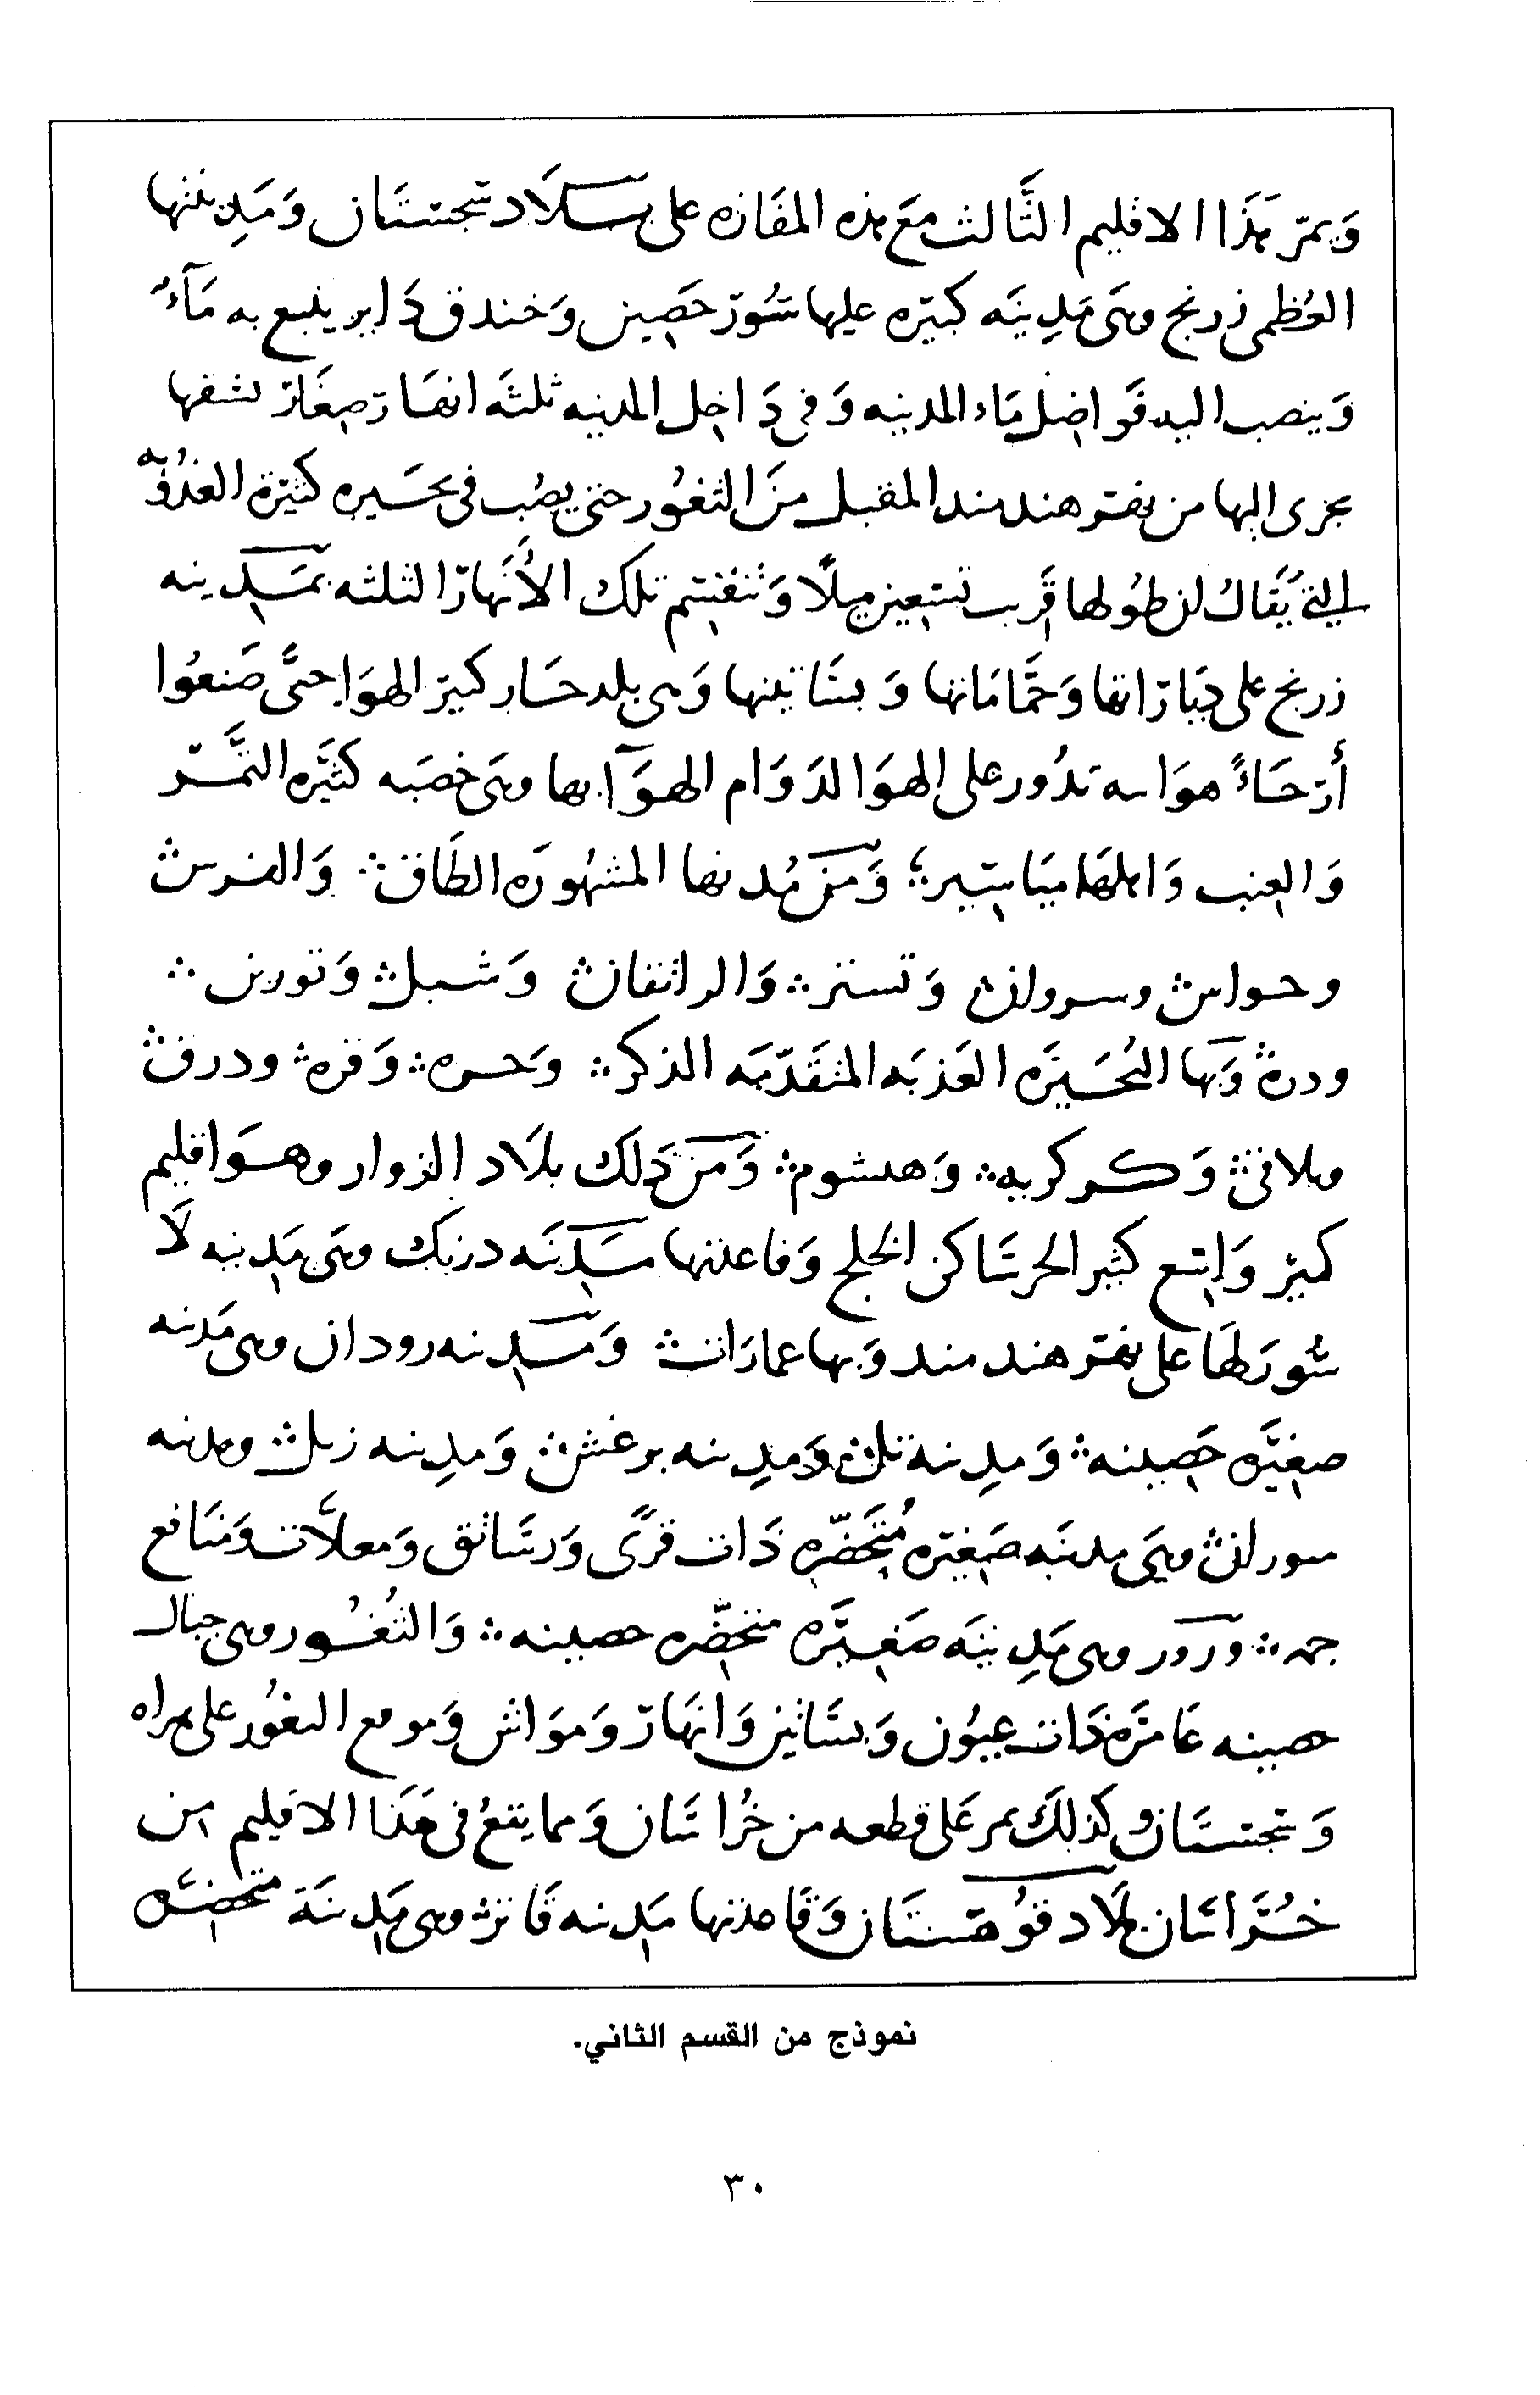 وَيمرّ هَذَا الاقليم الثَّالث مَعَ هذه المفَازه على بلَاد سجستَان وَمَدِينتها
العُظمى زرنج وهَى مَدِينَه كبيره عليها سُورٌ حَصِين وَخندق دَاير ينبع به مَآءٌ
وَينصب اليه فَواضل مَاء المدينه وَفى دَاخِل المدينه ثلثَه انهَار صِغَار تشقها
يجرى اليها من نهر هندمند المقبل منَ الثغُور حتى يصُب فى بحَيره كثيرة العذُوبَه
التى يُقَال ان طُولها قَرِيب تسعين ميلًا وَتنقسم تلك الأَنهَار الثلثه بمَدينه
زرنج على ديَارَاتها وَحَمَّامَاتها وَبسَاتينها وَهى بلد حَار كثير الهوَا حتَّى صَنعُوا
أرْحَاءً هوَاىىه تدُور على الهوَا لدَوَام الهوَآ بها وهَى خصبَه كثيَره التَّمر
وَالعنب وَاهلهَا مياسير وَمنَ مُدنها المشهُورَه الطَاق وَالفرس
وحواس وسروان وَتستر وَالرانقان وَشبل وَنورىن
ودره وَبها البُحَيَره العَذبَه المتقَدّمَه الذكر وَحىىره وَفره ودرق
وَكركويه وَهىشوم وَمنَ ذَلك بلَاد الزوار وهوَ اقليم
كبير وَاسع كثير الحر سَاكن الخلج وَقاعدتها مَدِينَه درنك وهَى مَدِينه لَا
سُورَ لهَا على نهر هندمند وَبها عمارَات وَمَدِينه رودان وهى مَدينه
صغيَره حَصِينه وَمدِينة تل وَمدِينه برغش وَمدِينه زىل ومدينه
سوران وهىَ مدينَه صَغيره مُتحَضّره ذَات قرًى وَرسَاتق وَمعلاَّت وَمنَافع
جمه ورور وهى مَدِينَه صَغيَره متحضّره حصينه وَالثُغُور وهى جبال
حصينه عَامَره ذَات عيُون وَبسَاتين وَانهَار وَموَاش وَموقع الغوُر على هراه
وَسجستَان وكذلكَ يمر عَلى قطعه من خُرَاسَان وَمما يقعُ فى هَذا الاقليم من
خُرَاسَان بلَاد قوُهستَان وَقَاعدتها مَدِينه قَاىن وهى مَدِينَة متحضره
نموذج من القسم الثاني.
٣٠